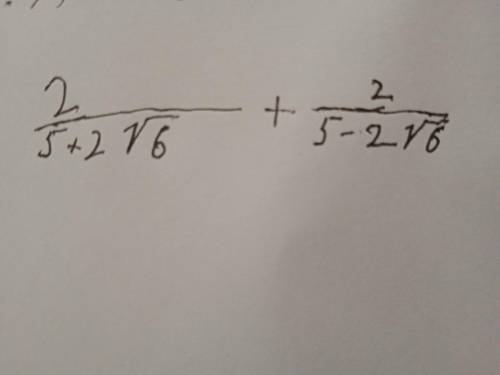 2/(5+2√6) + 2/(5-2√6)